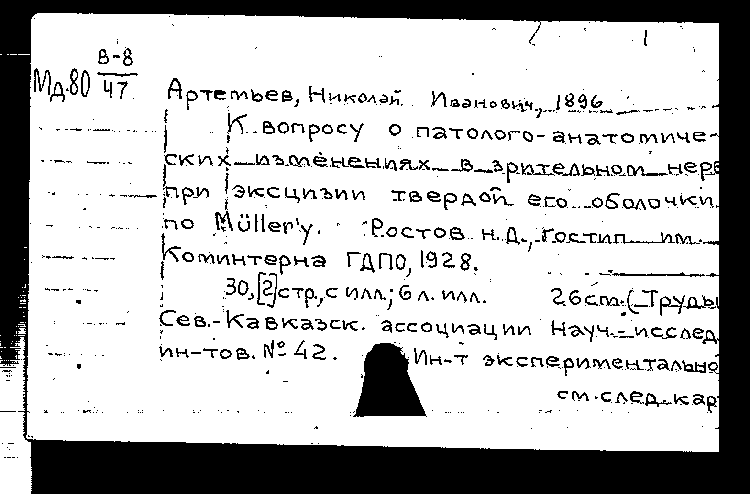 В-8
Мд.80 47
Артемьев, Николай Иванович, 1896
К вопросу о патолого-анатомиче-
ских изменениях в зрительном нерв
при эксцизии твердой его оболочки
по Müller'у. Ростов н.Д., гостип им.
Коминтерна ГДПО, 1928.
30, [2] стр., с илл.; 6 л. илл. 26 cm. (Труды
Сев.-Кавказск. ассоциации Науч.-исслед.
ин-тов. № 42. Ин-т экспериментально
см. след. кар